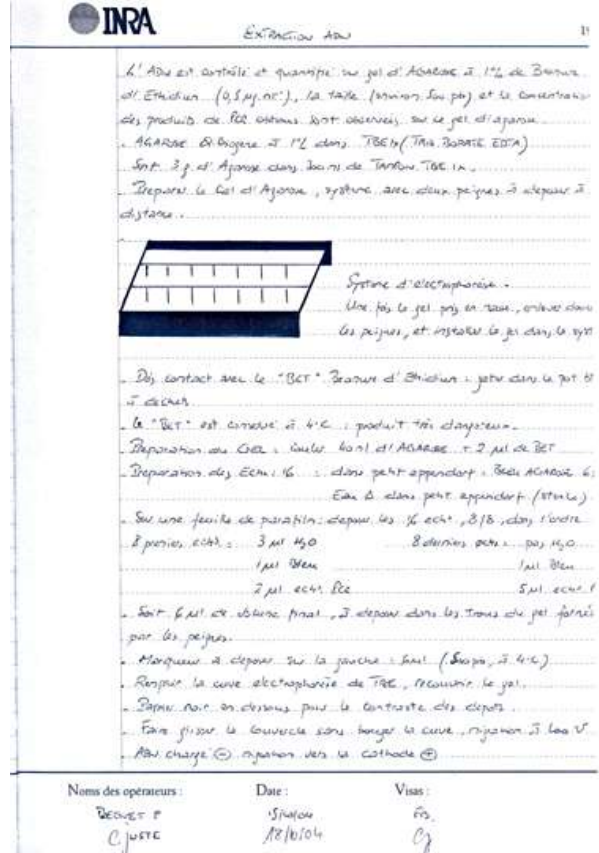 INRA
EXTRACTION ADN
L'ADN est contrôlé et quantifié sur gel d'AGAROSE à 1% de Bromure
d'Ethidium (0,5 µg.ml-1), La taille (environ 500 pb) et la concentration
des produits de PCR obtenus sont observés sur le gel d'agarose.
- AGAROSE à 1% dans TBE 1x (TRIS BORATE EDTA)
Soit 3 g d'Agarose dans 300 ml de TAMPON TBE 1x.
- Préparer le Gel d'Agarose, système avec deux peignes à déposer à
distance.
Système d'électrophorèse.
Une fois le gel pris en masse, enlever
les peignes, et installer le gel dans le syst
- Dès contact avec le "BET" Bromure d'Ethidium : jeter dans le pot
à déchet
- Le "BET" est conservé à 4°C : produit très dangereux.
- Préparation du GEL : couler 40 ml d'AGAROSE + 2 µl de BET
- Préparation des Ech : 16 : dans petit eppendorf : Bleu AGAROSE 6
Eau Δ dans petit eppendorf (stérile)
- Sur une feuille de parafilm : déposer les 16 ech, 8/8, dans l'ordre
8 premiers ech : 3 µl H2O 8 derniers ech : pas H2O
1 µl Bleu 1 µl Bleu
2 µl ech PCR 5 µl ech
- Soit 6 µl de volume final, à déposer dans les trous du gel formés
par les peignes.
- Marqueur à déposer sur la gauche : 5 µl
- Remplir la cuve électrophorèse de TBE, recouvrir le gel.
- Papier noir en dessous pour le contraste des dépôts.
- Faire glisser le couvercle sans bouger la cuve, migration à 100 V
- ADN chargé ⊖ migration vers la cathode ⊕
Noms des opérateurs : Date : Visas :
C. JUSTE 18/10/04 CJ